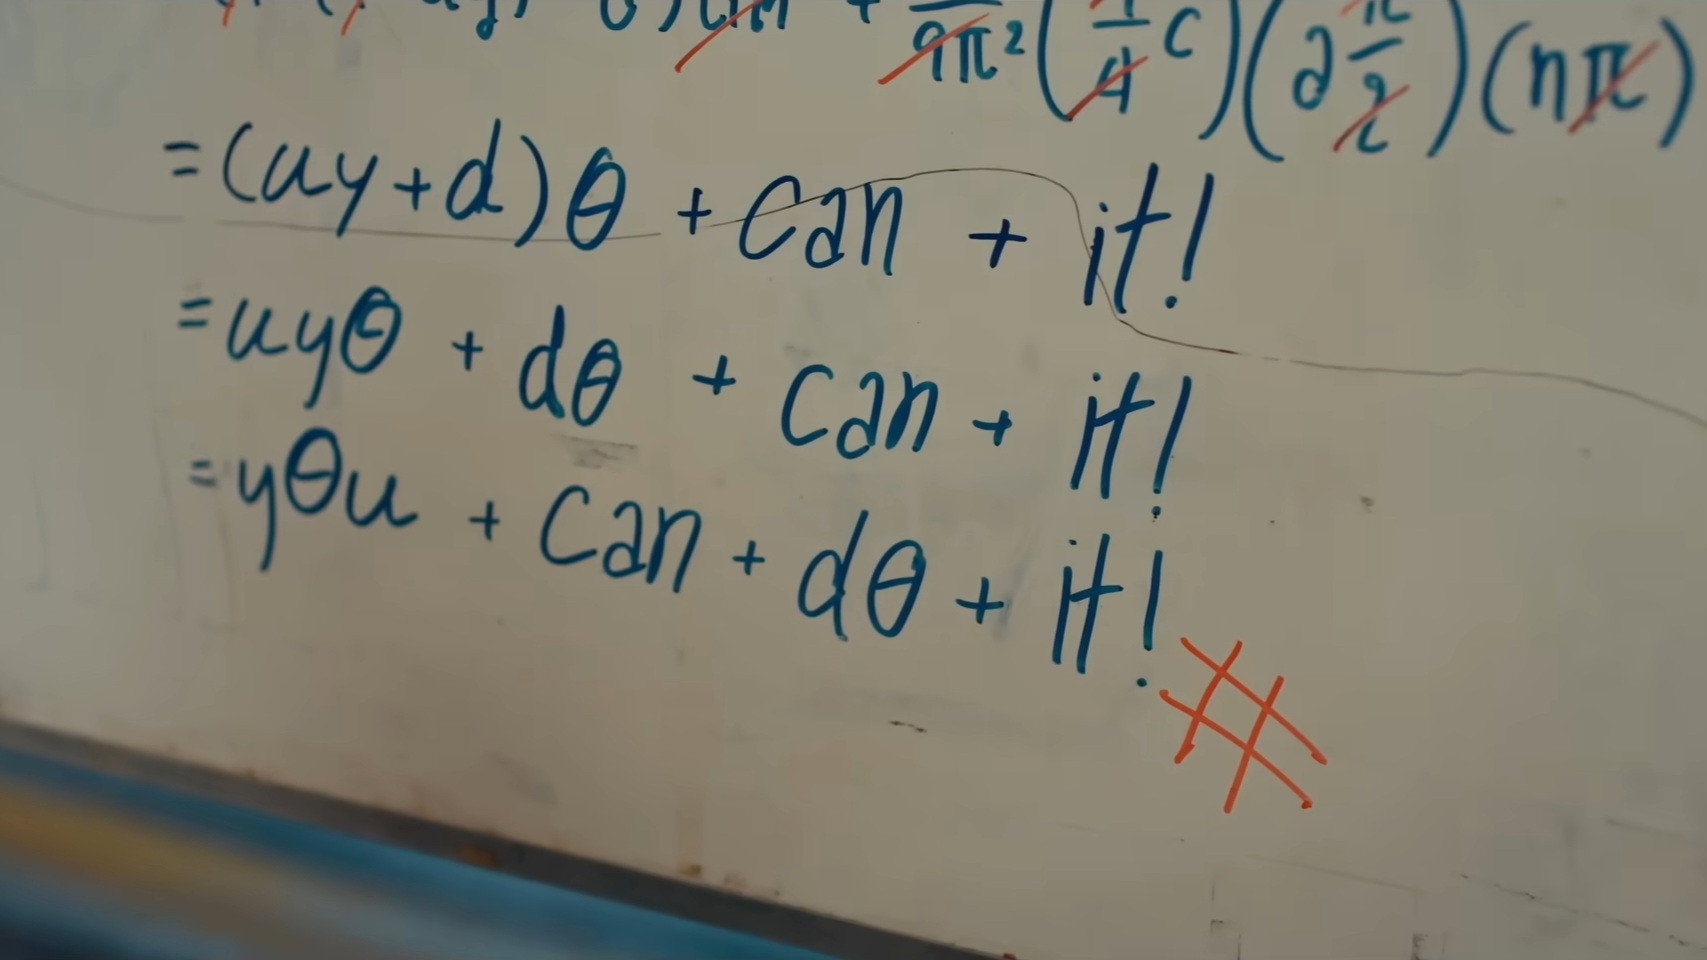 9π² (1/4 c) (∂ π/2) (nπ)
= (uy + d) θ + can + it!
= uyθ + dθ + can + it!
= yθu + can + dθ + it!